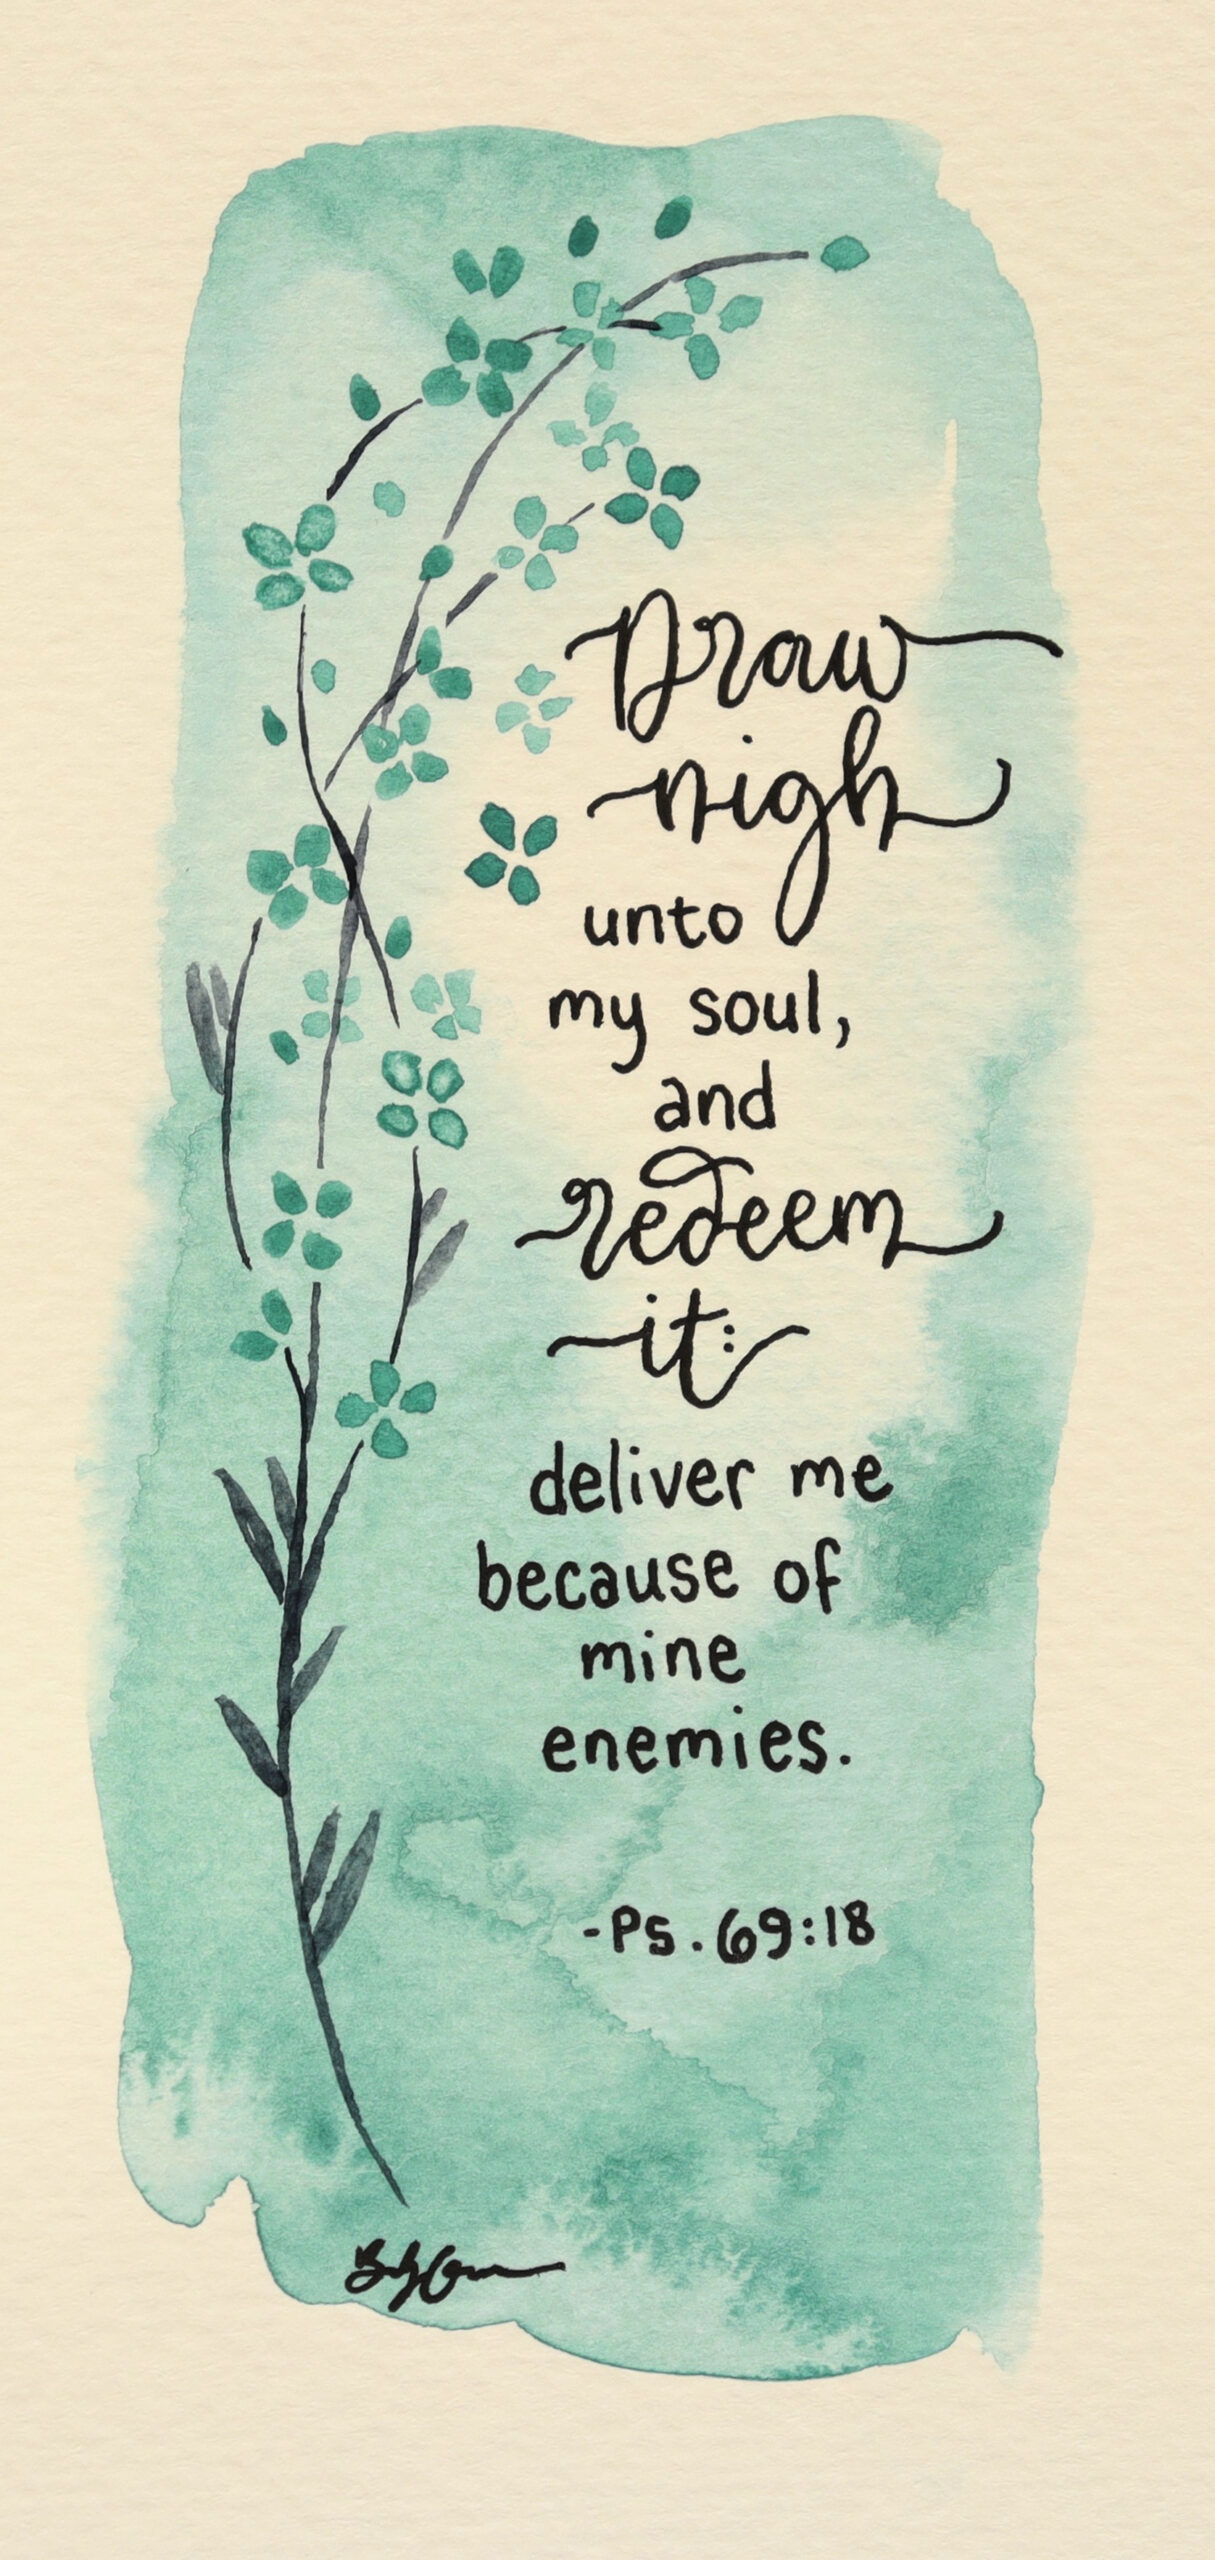 Draw
nigh
unto
my soul,
and
redeem
it:
deliver me
because of
mine
enemies.
-Ps. 69:18